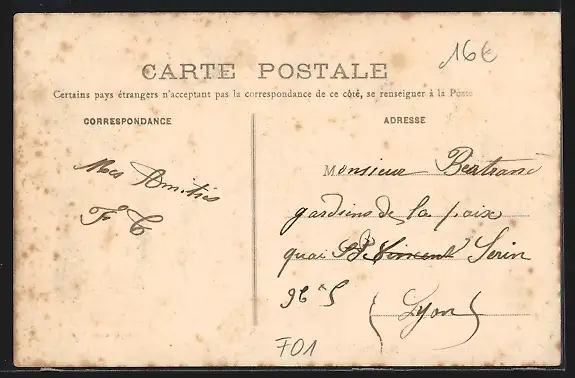 16€
CARTE POSTALE
Certains pays étrangers n'acceptant pas la correspondance de ce côté, se renseigner à la Poste
CORRESPONDANCE
ADRESSE
Mes Amitiés
F C
Monsieur Bertrand
gardiens de la paix
quai St Vincent Serin
(Lyon)
F01